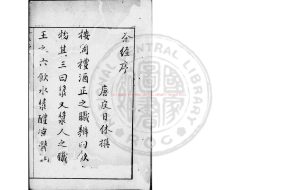 茶經序
唐皮日休撰
按周禮酒正之職辨四飲
物其三曰漿又漿人之職
王之六飲水漿醴涼醫酏
CENTRAL LIBRARY